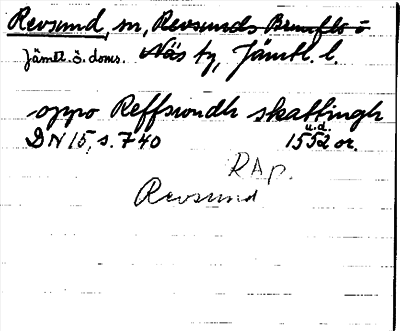 Revsund, sn, Revsunds Brunflo o
Jämtl. ö. doms. Näs tg, Jämtl. l.
oppo Reffswndh skattingh
DN 15, s. 740 u.d. 1552 or.
RAp.
Revsund